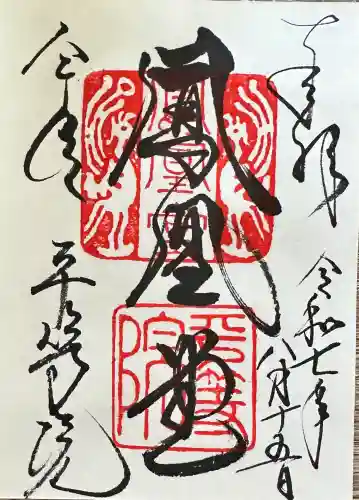 奉拝
令和七年
八月十五日
鳳凰堂
平等院
鳳凰堂
平等
院